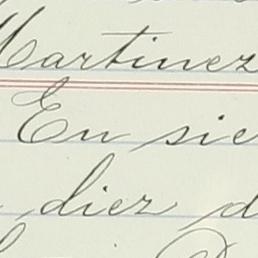 Martinez
En sie
diez d